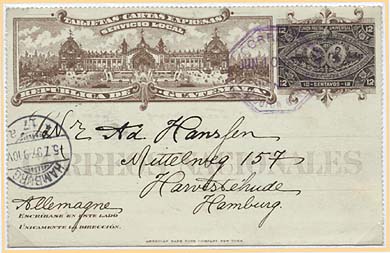 TARJETAS CARTAS EXPRESAS
SERVICIO LOCAL
REPÚBLICA DE GUATEMALA
UNION POSTAL UNIVERSAL
12 12
12 CENTAVOS 12
CORREOS NACIONALES
HAMBURG
5.7.97
Mr Ad Hanssen
Mittelweg 157
Harvestehude
Hamburg.
Allemagne
ESCRÍBASE EN ESTE LADO
ÚNICAMENTE LA DIRECCIÓN.
AMERICAN BANK NOTE COMPANY NEW YORK